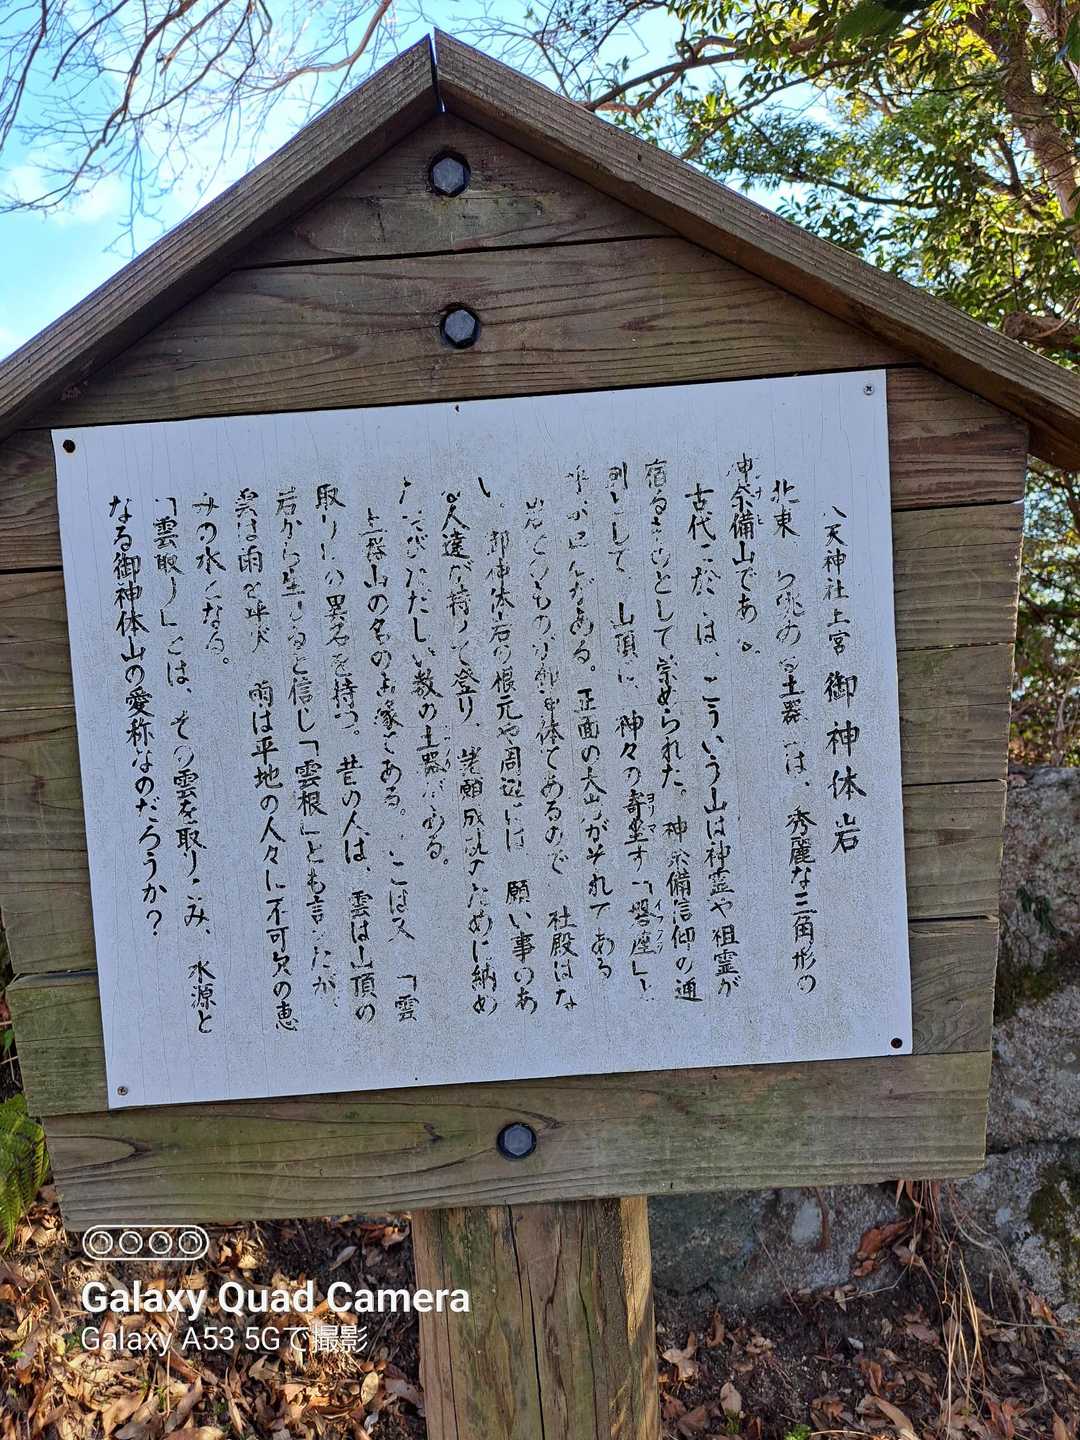 八天神社上宮 御神体岩
北東 眺める土器 は、秀麗な三角形の
神奈備山である。
古代に於 は、こういう山は神霊や祖霊が
宿るものとして崇められた。神奈備信仰の通
例として、山頂に、神々の寄坐す「磐座」
ヨリマ
イワクラ
ある。正面の大岩がそれである
岩そのものが御神体であるので 社殿はな
い。御神体岩の根元や周辺には、願い事のあ
る人達が持って登り、諸願成就のために納め
たおびただしい数の土器がある。
土器山の名の由縁である。ここは又、「雲
取り」の異名を持つ。昔の人は、雲は山頂の
岩から生まると信じ「雲根」とも言ったが、
雲は雨を呼び 雨は平地の人々に不可欠の恵
みの水となる。
「雲取り」とは、その雲を取りこみ、水源と
なる御神体山の愛称なのだろうか?
Galaxy Quad Camera
Galaxy A53 5Gで撮影